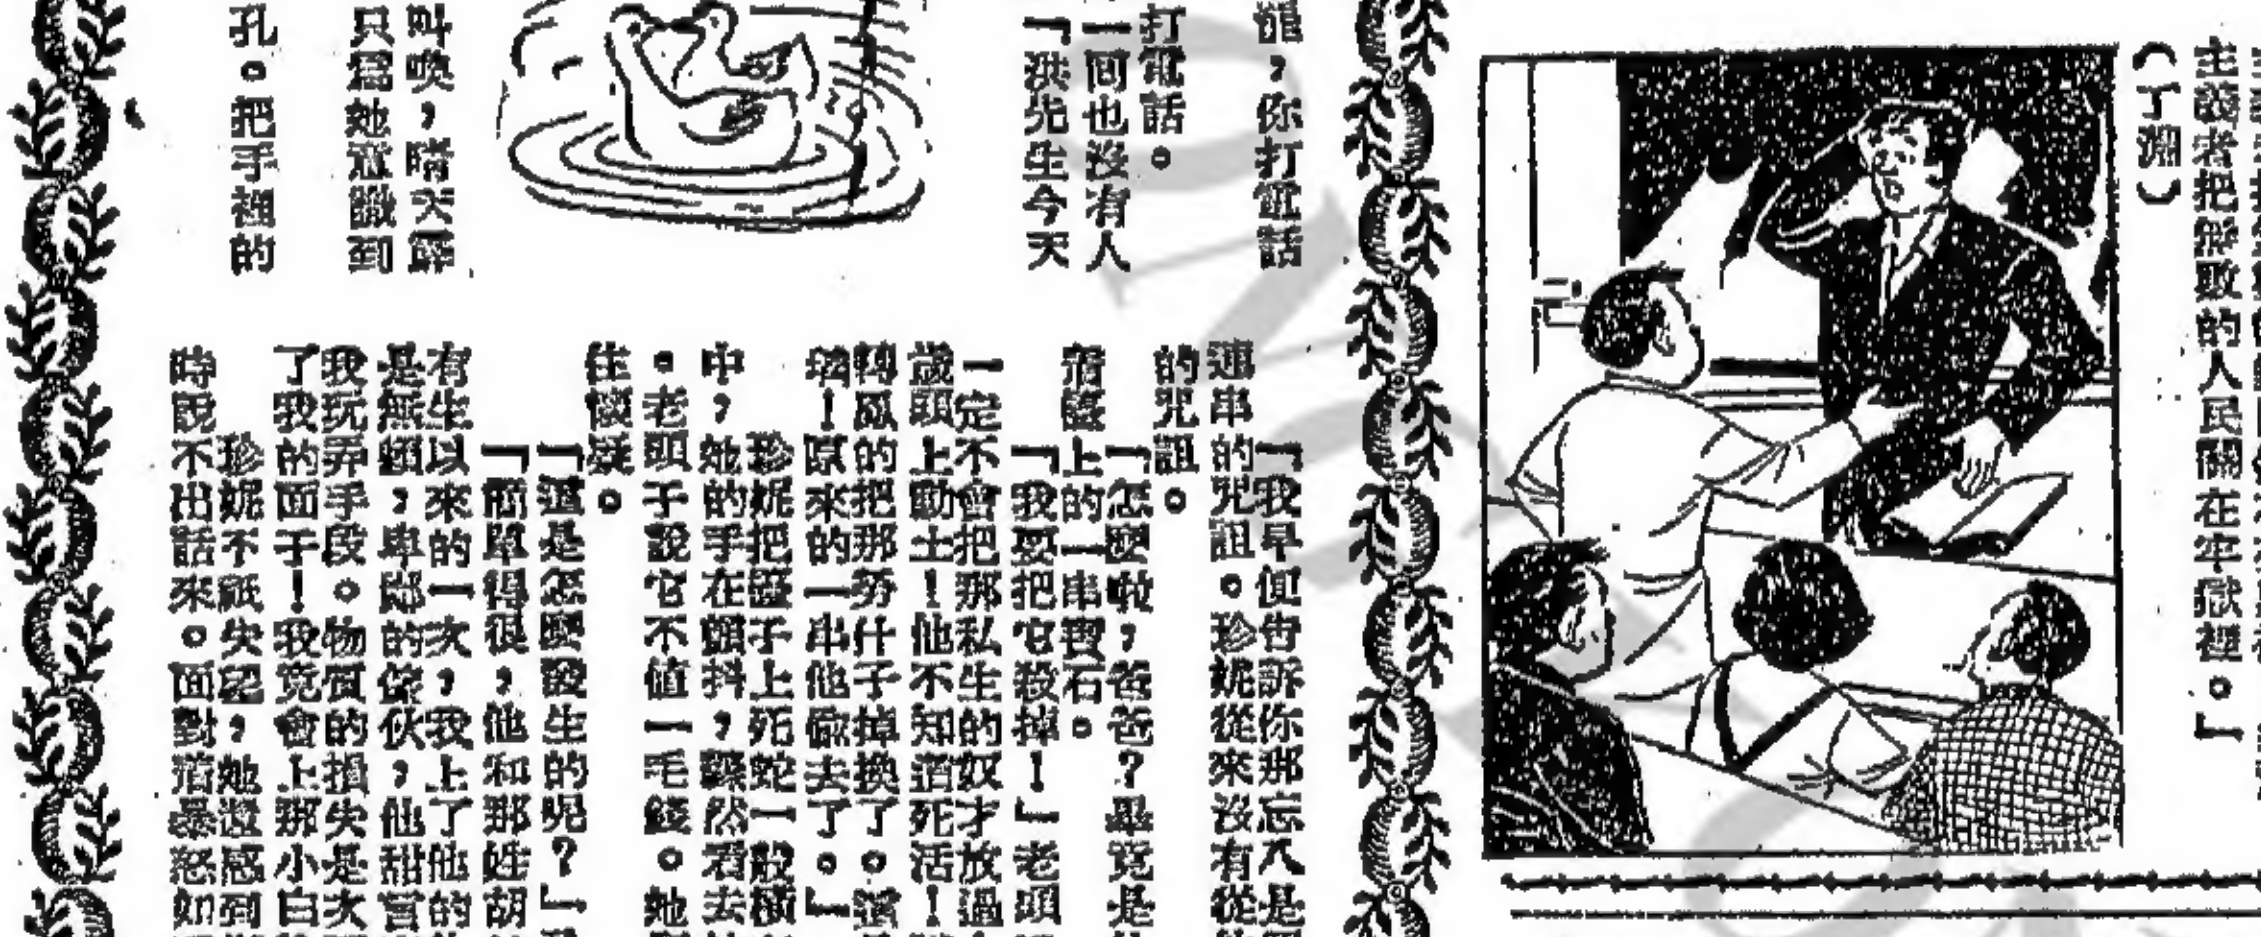 主義者把無數的人民關在牢獄裡。」
(丁淵)
龍，你打電話
打電話。
一回也沒有人
「洪先生今天
叫喚，晴天霹
只爲她意識到
孔。把手裡的
「我早便告訴你那忘八是
連串的咒詛。珍妮從來沒有從
的咒詛。
「怎麼啦，爸爸？畢竟是
着盤上的一串寶石。
「我要把它殺掉！」老頭
一定不會把那私生的奴才放過
歲頭上動土！他不知道死活！
轉風的把那勞什子掉換了。
！原來的一串他偸去了。」
珍妮把盤子上死蛇一般橫
中，她的手在顫抖，驟然看去
。老頭子說它不値一毛錢。她
住懷疑。
「這是怎麼發生的呢？」
「簡單得很，他和那姓胡
有生以來的一次，我上了他的
是無賴，卑鄙的傢伙，他甜言
我玩弄手段。物質的損失是次
了我的面子！我竟會上那小白
珍妮不祇失望，她還感到
時說不出話來。面對着暴怒如